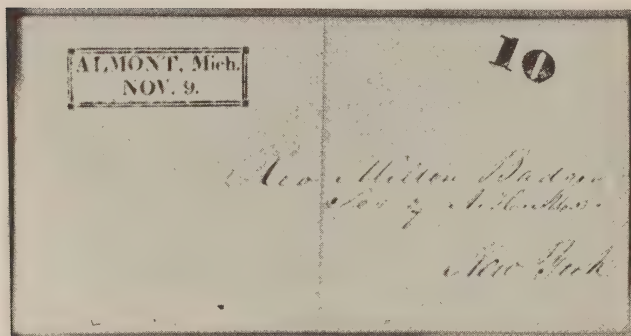 ALMONT, Mich.
NOV. 9.
10
Rev Milton Badger
New York